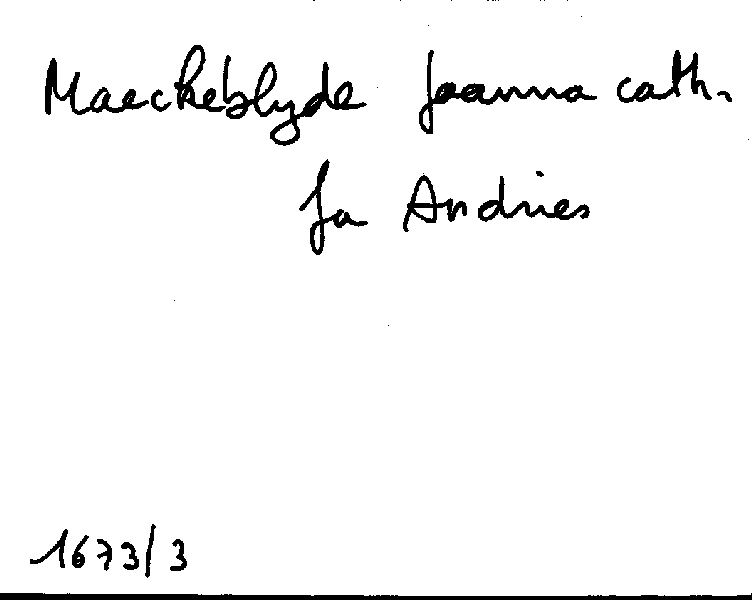 Maeckeblyde Joanna cath.
fa Andries
1673/3